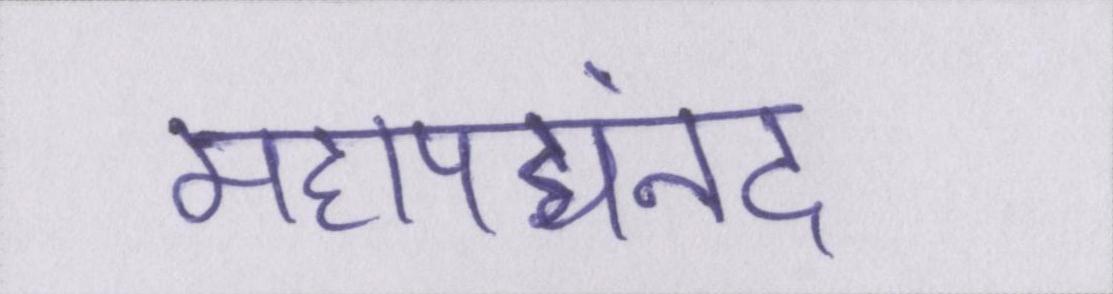 महापद्यंनद